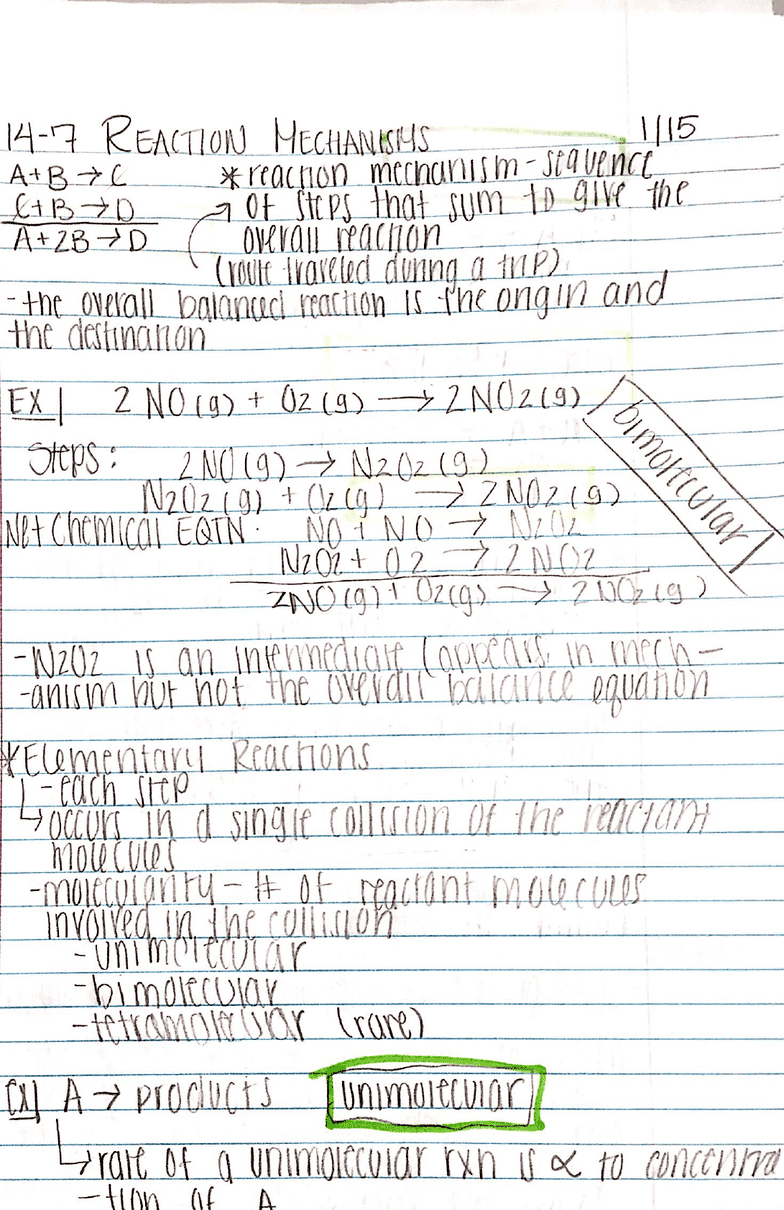 14-7 REACTION MECHANISMS 1/15
A+B → C *reaction mechanism - sequence
C+B → D of steps that sum to give the
A+2B → D overall reaction
(route traveled during a trip)
-the overall balanced reaction is the origin and
the destination
EX| 2 NO(g) + O2(g) → 2NO2(g)
bimolecular
Steps: 2NO(g) → N2O2(g)
N2O2(g) + O2(g) → 2NO2(g)
Net Chemical EQTN: NO + NO → N2O2
N2O2 + O2 → 2NO2
2NO(g) + O2(g) → 2NO2(g)
-N2O2 is an intermediate (appears in mech-
-anism but not the overall balance equation
*Elementary Reactions
-each step
↳occurs in a single collision of the reactant
molecules
-molecularity - # of reactant molecules
involved in the collision
-unimolecular
-bimolecular
-tetramolecular (rare)
EX| A → products unimolecular
↳rate of a unimolecular rxn is ∝ to concentra
-tion of A